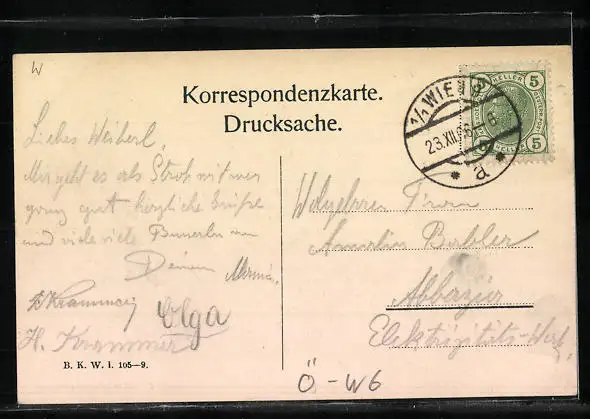 W
Korrespondenzkarte.
Drucksache.
5 HELLER 5
1/1 WIEN 1
23.XII.06
* a *
Liebes Weiberl,
Mir geht es als Strohwitwer
ganz gut herzliche Grüße
und viele viele Busserln von
Deinem
Olga
H. Krammer
Amalia
Abbazia
Elektrizitäts-Werk
B. K. W. I. 105—9.
Ö-W6